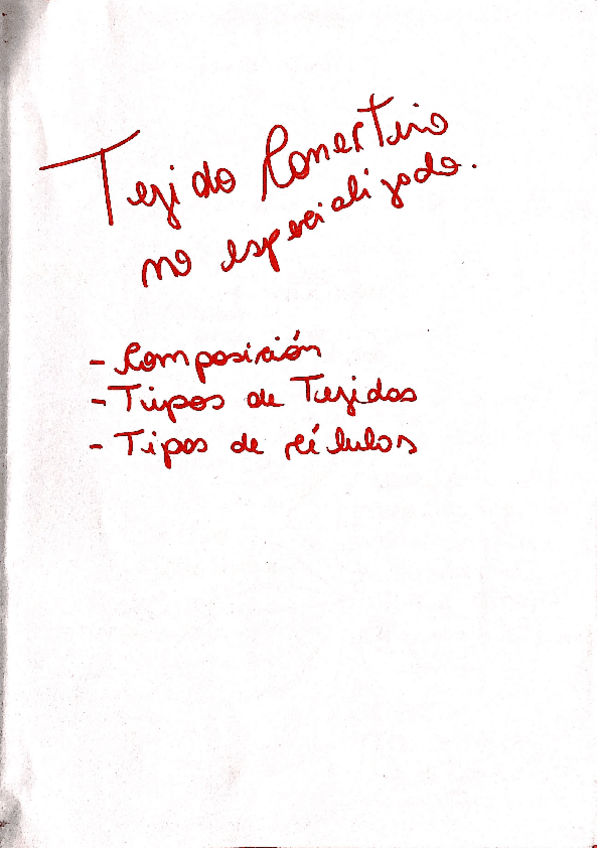 Tejido Conectivo
no especializado.
- Composición
- Tipos de Tejidos
- Tipos de células